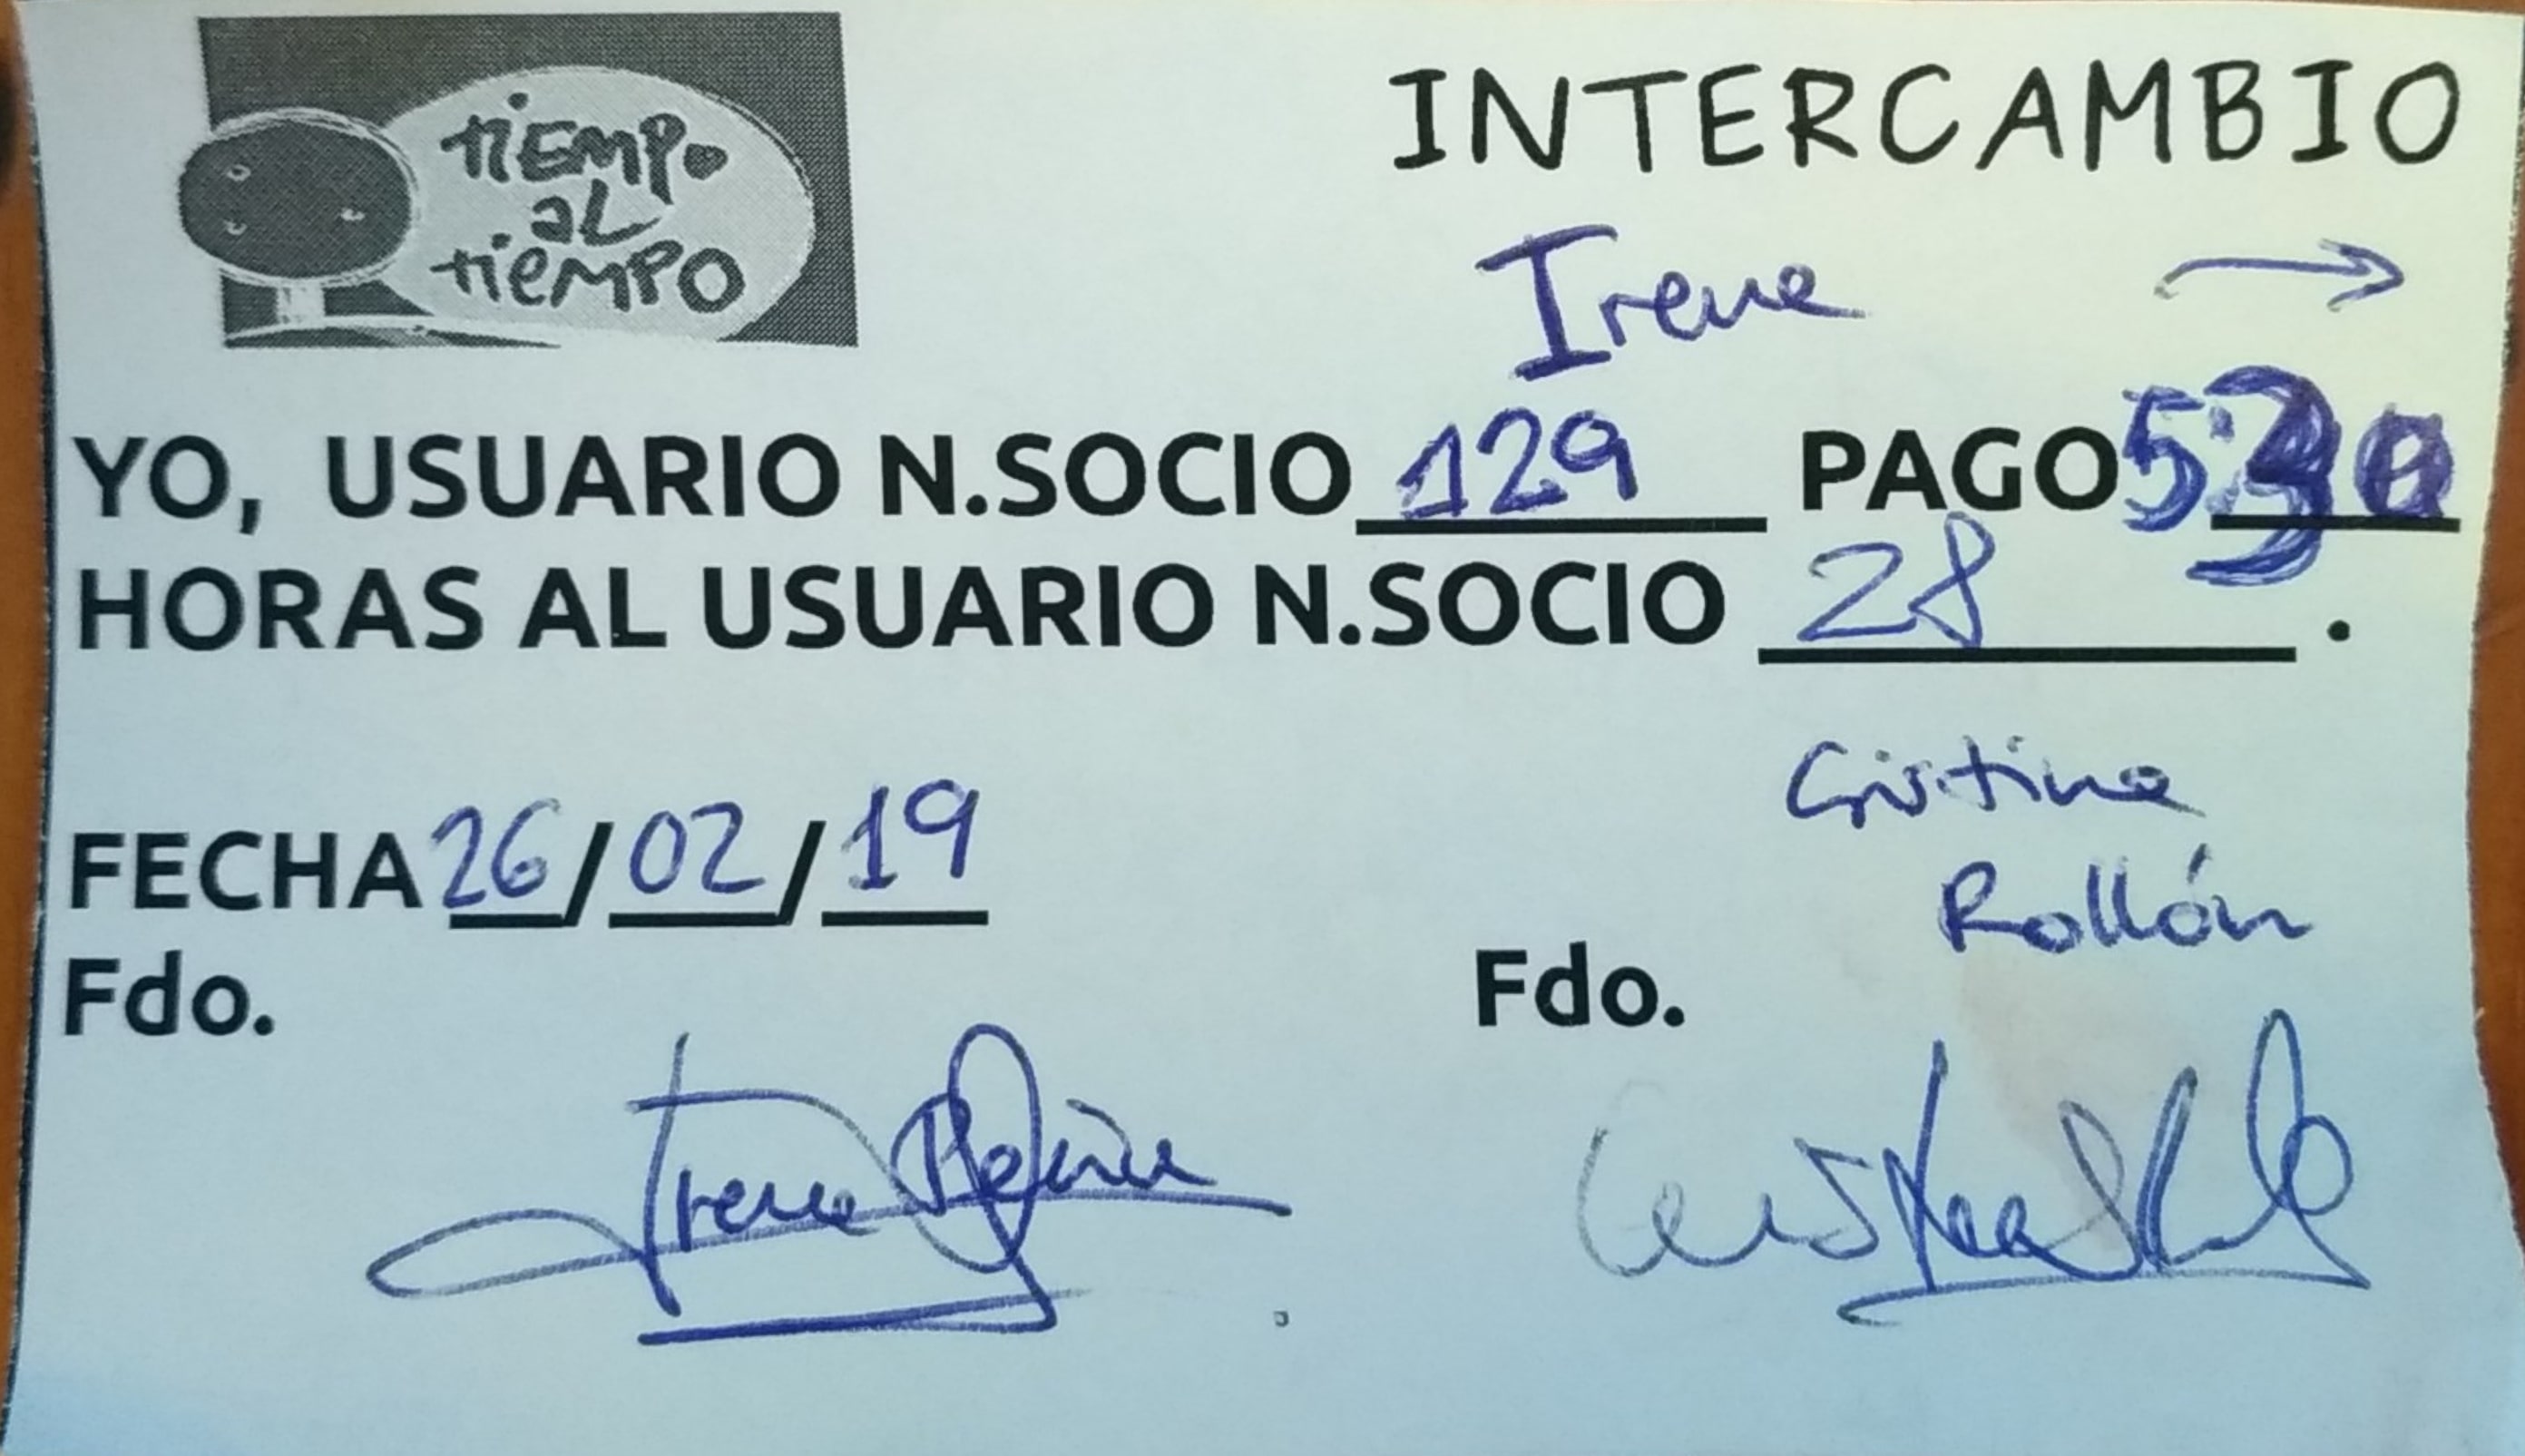 tiEMPo
aL
tiEMPO
INTERCAMBIO
Irene →
YO, USUARIO N.SOCIO 129 PAGO
HORAS AL USUARIO N.SOCIO 28 .
Cristina
Rollón
FECHA 26/02/19
Fdo. Fdo.
Irene